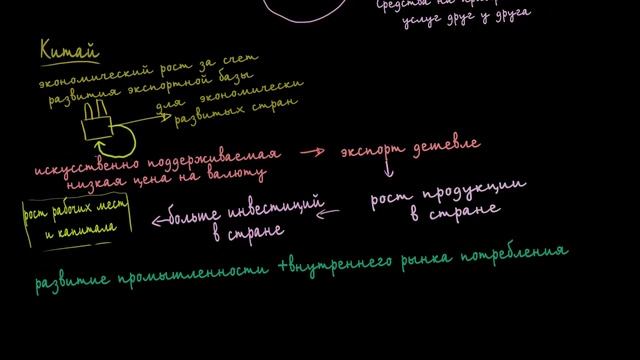 средства на
услуг друг у друга
Китай
экономический рост за счет
развития экспортной базы
для экономически
развитых стран
искусственно поддерживаемая
низкая цена на валюту
экспорт дешевле
рост продукции
в стране
больше инвестиций
в стране
рост рабочих мест
и капитала
развитие промышленности +внутреннего рынка потребления